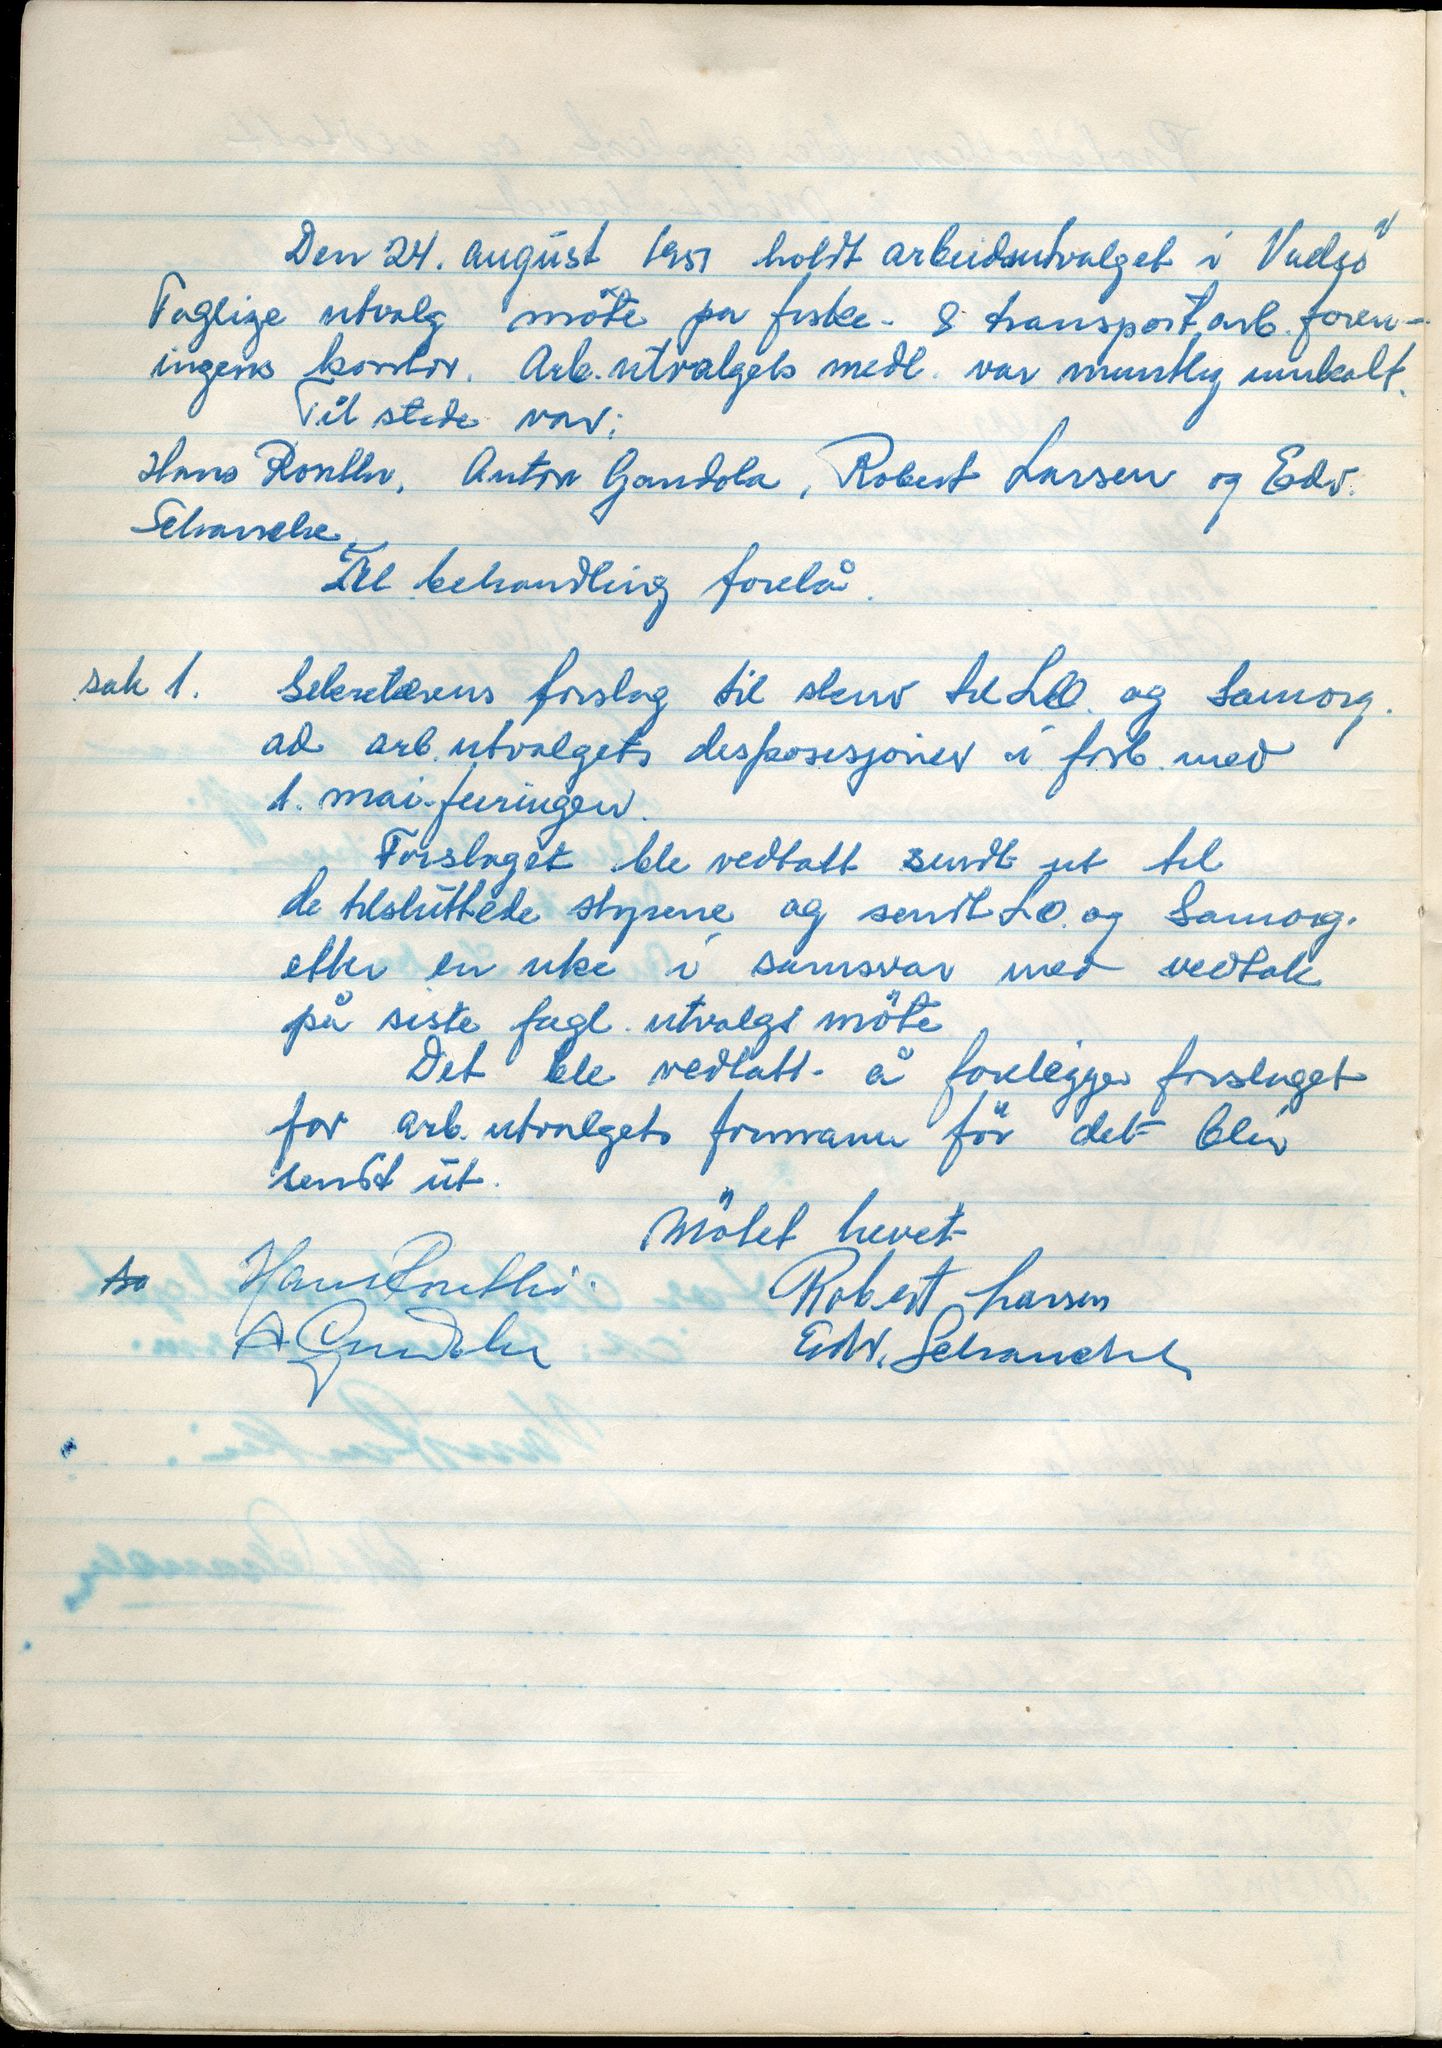 Den 24. august 1951 holdt arbeidsutvalget i Vadsö
Faglige utvalg möte på fiske- & transport.arb.foren-
ingens kontor. Arb.utvalgets medl. var muntlig innkalt.
Til stede var:
Hans Ronthi, Anton Gandola, Robert Larsen og Edv.
Schanche.
Til behandling forelå.
sak 1. Sekretærens forslag til skriv til LO. og Samorg.
ad arb.utvalgets desposisjoner i forb. med
1. mai-feiringen.
Forslaget ble vedtatt sendt ut til
de tilsluttede styrene og sendt LO. og Samorg.
etter en uke i samsvar med vedtak
på siste fagl. utvalgs möte
Det ble vedtatt å forelegge forslaget
for arb.utvalgets formann för det blir
sendt ut.
Mötet hevet
Hans Ronthi. Robert Larsen
A Gandola Edv. Schanche